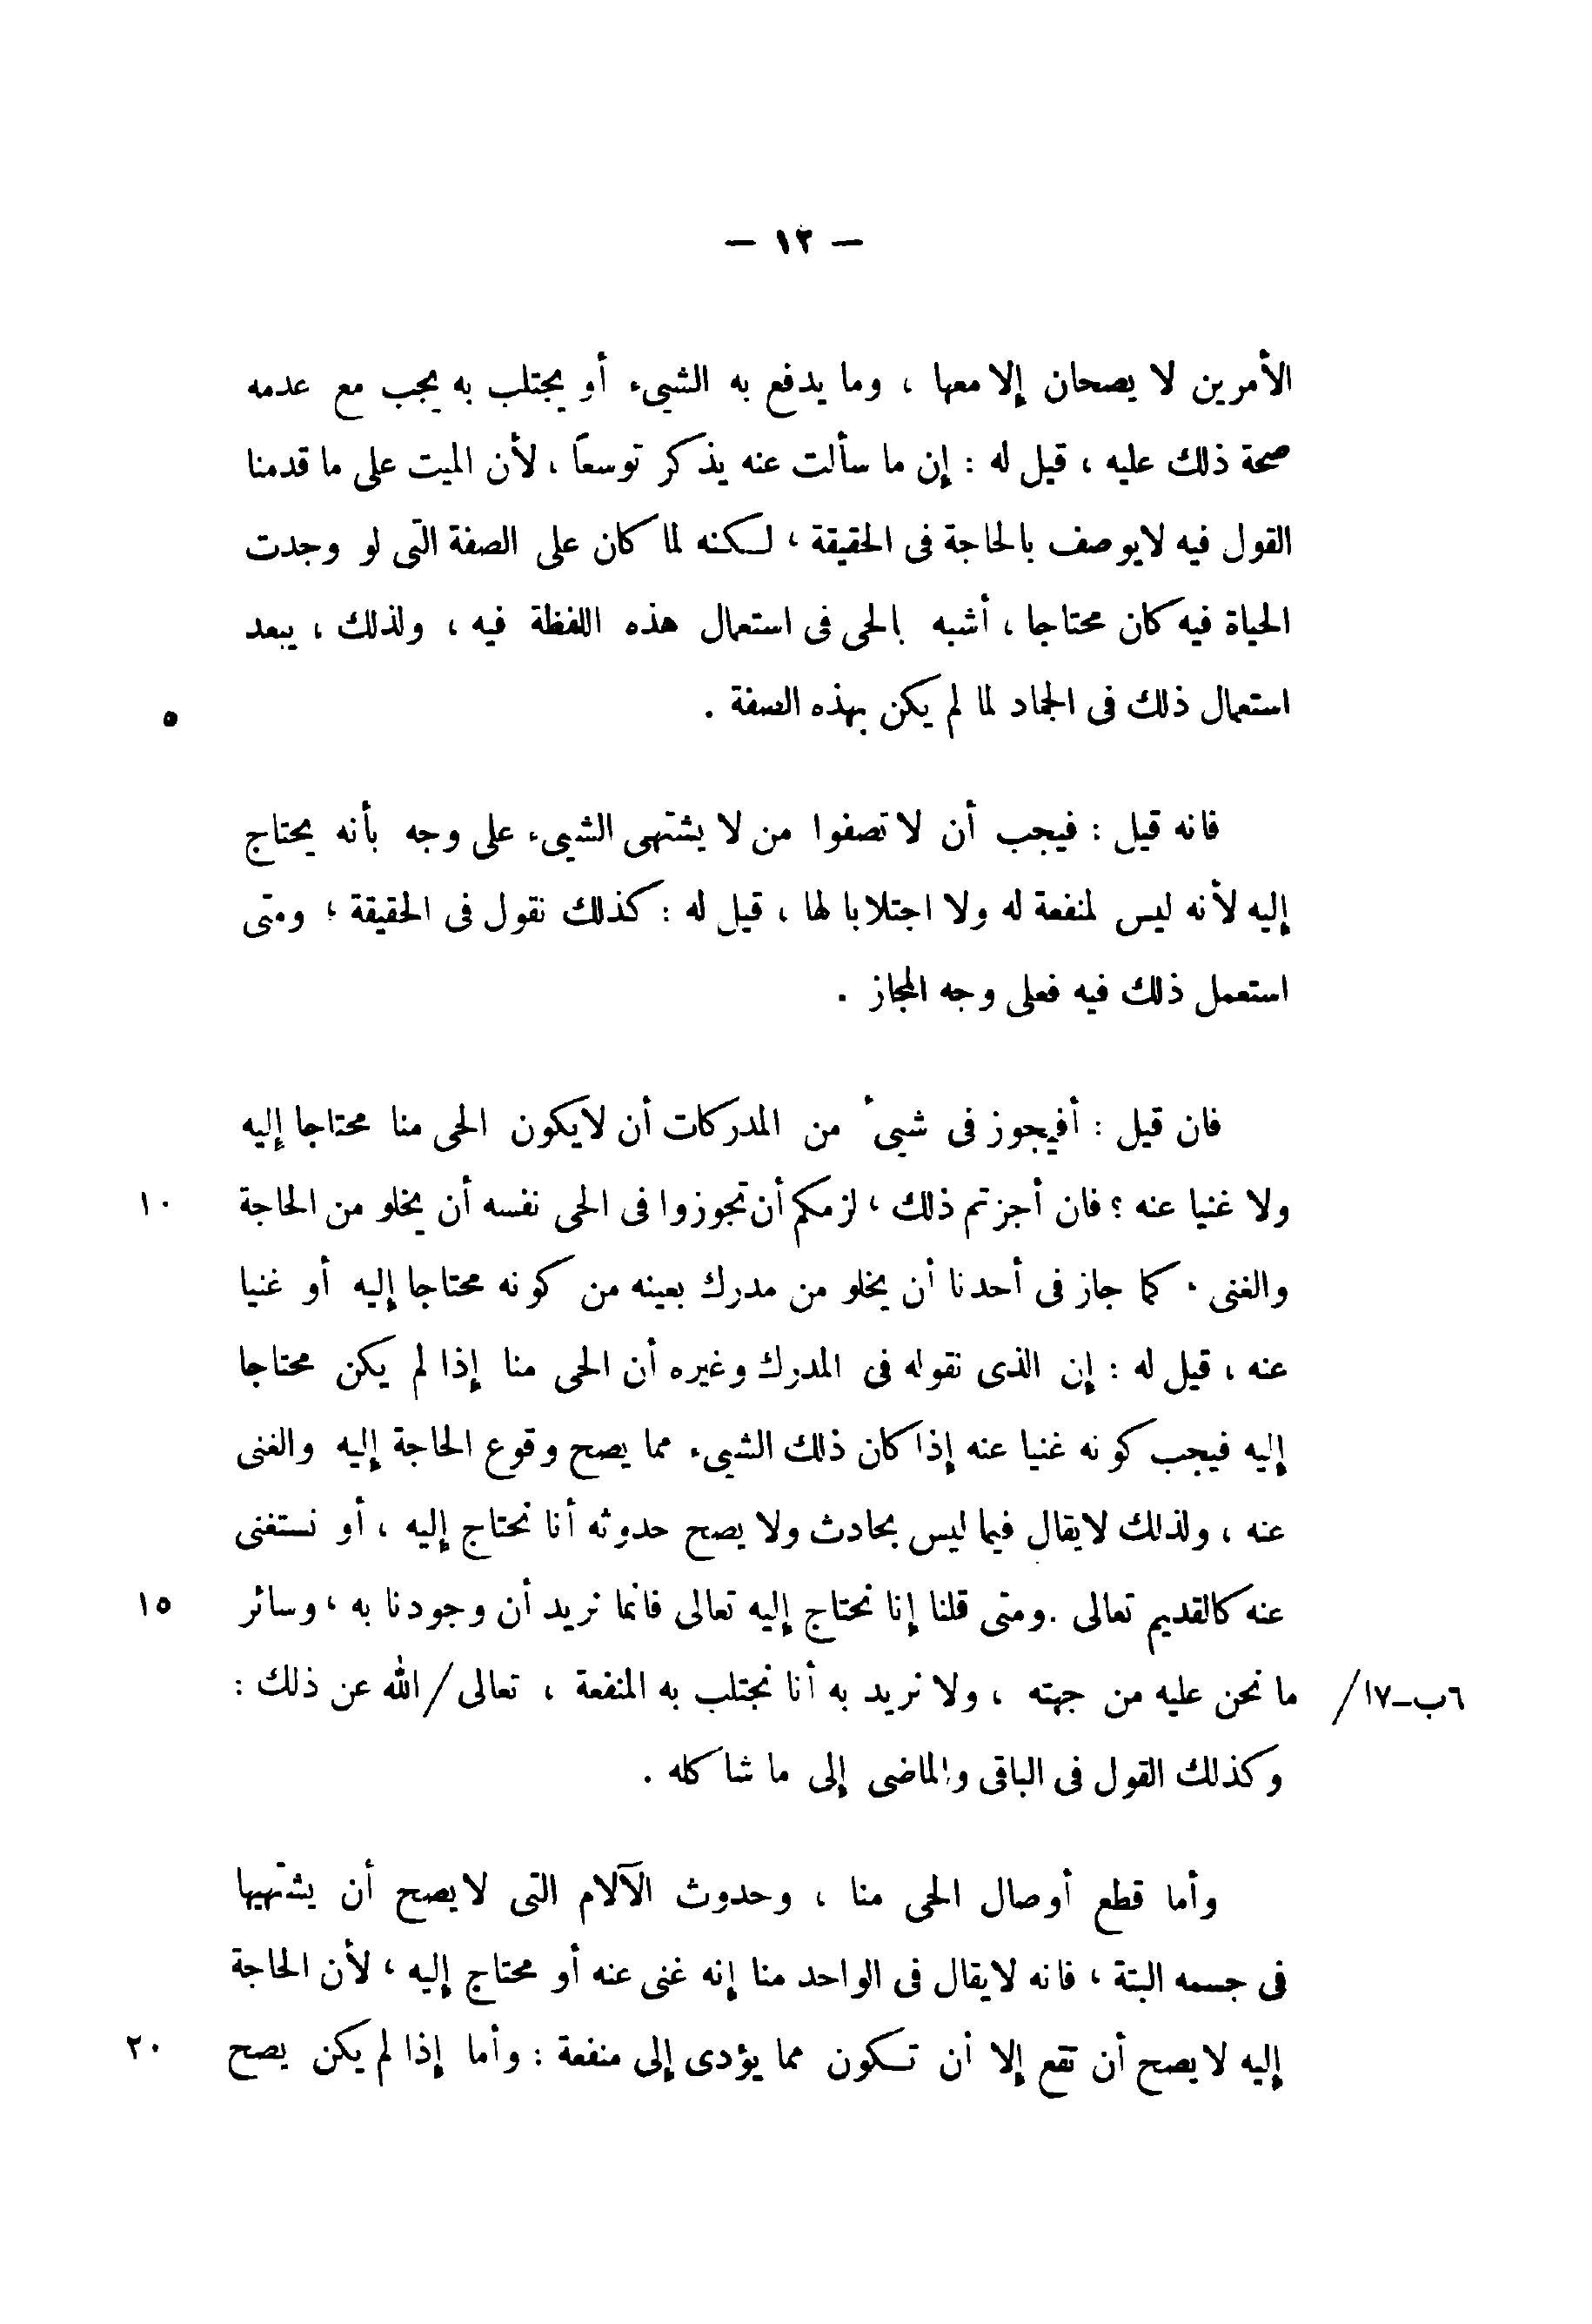 — ١٣ —
الأمرين لا يصحان إلا معها ، وما يدفع به الشيء أو يجتلب به يجب مع عدمه
صحة ذلك عليه ، قيل له : إن ما سألت عنه يذكر توسعاً ، لأن الميت على ما قدمنا
القول فيه لايوصف بالحاجة فى الحقيقة ، لكنه لما كان على الصفة التى لو وجدت
الحياة فيه كان محتاجا ، أشبه بالحى فى استعمال هذه اللفظة فيه ، ولذلك ، يبعد
استعمال ذلك فى الجماد لما لم يكن بهذه الصفة .
٥
فانه قيل : فيجب أن لا تصفوا من لا يشتهى الشيء على وجه بأنه يحتاج
إليه لأنه ليس لمنفعة له ولا اجتلابا لها ، قيل له : كذلك نقول فى الحقيقة ؛ ومتى
استعمل ذلك فيه فعلى وجه المجاز .
فان قيل : أفيجوز فى شىء من المدركات أن لايكون الحى منا محتاجا إليه
ولا غنيا عنه ؟ فان أجزتم ذلك ، لزمكم أن تجوزوا فى الحى نفسه أن يخلو من الحاجة
١٠
والغنى . كما جاز فى أحدنا أن يخلو من مدرك بعينه من كونه محتاجا إليه أو غنيا
عنه ، قيل له : إن الذى نقوله فى المدرك وغيره أن الحى منا إذا لم يكن محتاجا
إليه فيجب كونه غنيا عنه إذا كان ذلك الشيء مما يصح وقوع الحاجة إليه والغنى
عنه ، ولذلك لايقال فيما ليس بحادث ولا يصح حدوثه أنا نحتاج إليه ، أو نستغنى
عنه كالقديم تعالى . ومتى قلنا إنا نحتاج إليه تعالى فانما نريد أن وجودنا به ، وسائر
١٥
٦ب-١٧/ ما نحن عليه من جهته ، ولا نريد به أنا نجتلب به المنفعة ، تعالى/ الله عن ذلك :
وكذلك القول فى الباقى والماضى إلى ما شاكله .
وأما قطع أوصال الحى منا ، وحدوث الآلام التى لايصح أن يشتهيها
فى جسمه البتة ، فانه لايقال فى الواحد منا إنه غنى عنه أو محتاج إليه ، لأن الحاجة
إليه لايصح أن تقع إلا أن تكون مما يؤدى إلى منفعة : وأما إذا لم يكن يصح
٢٠